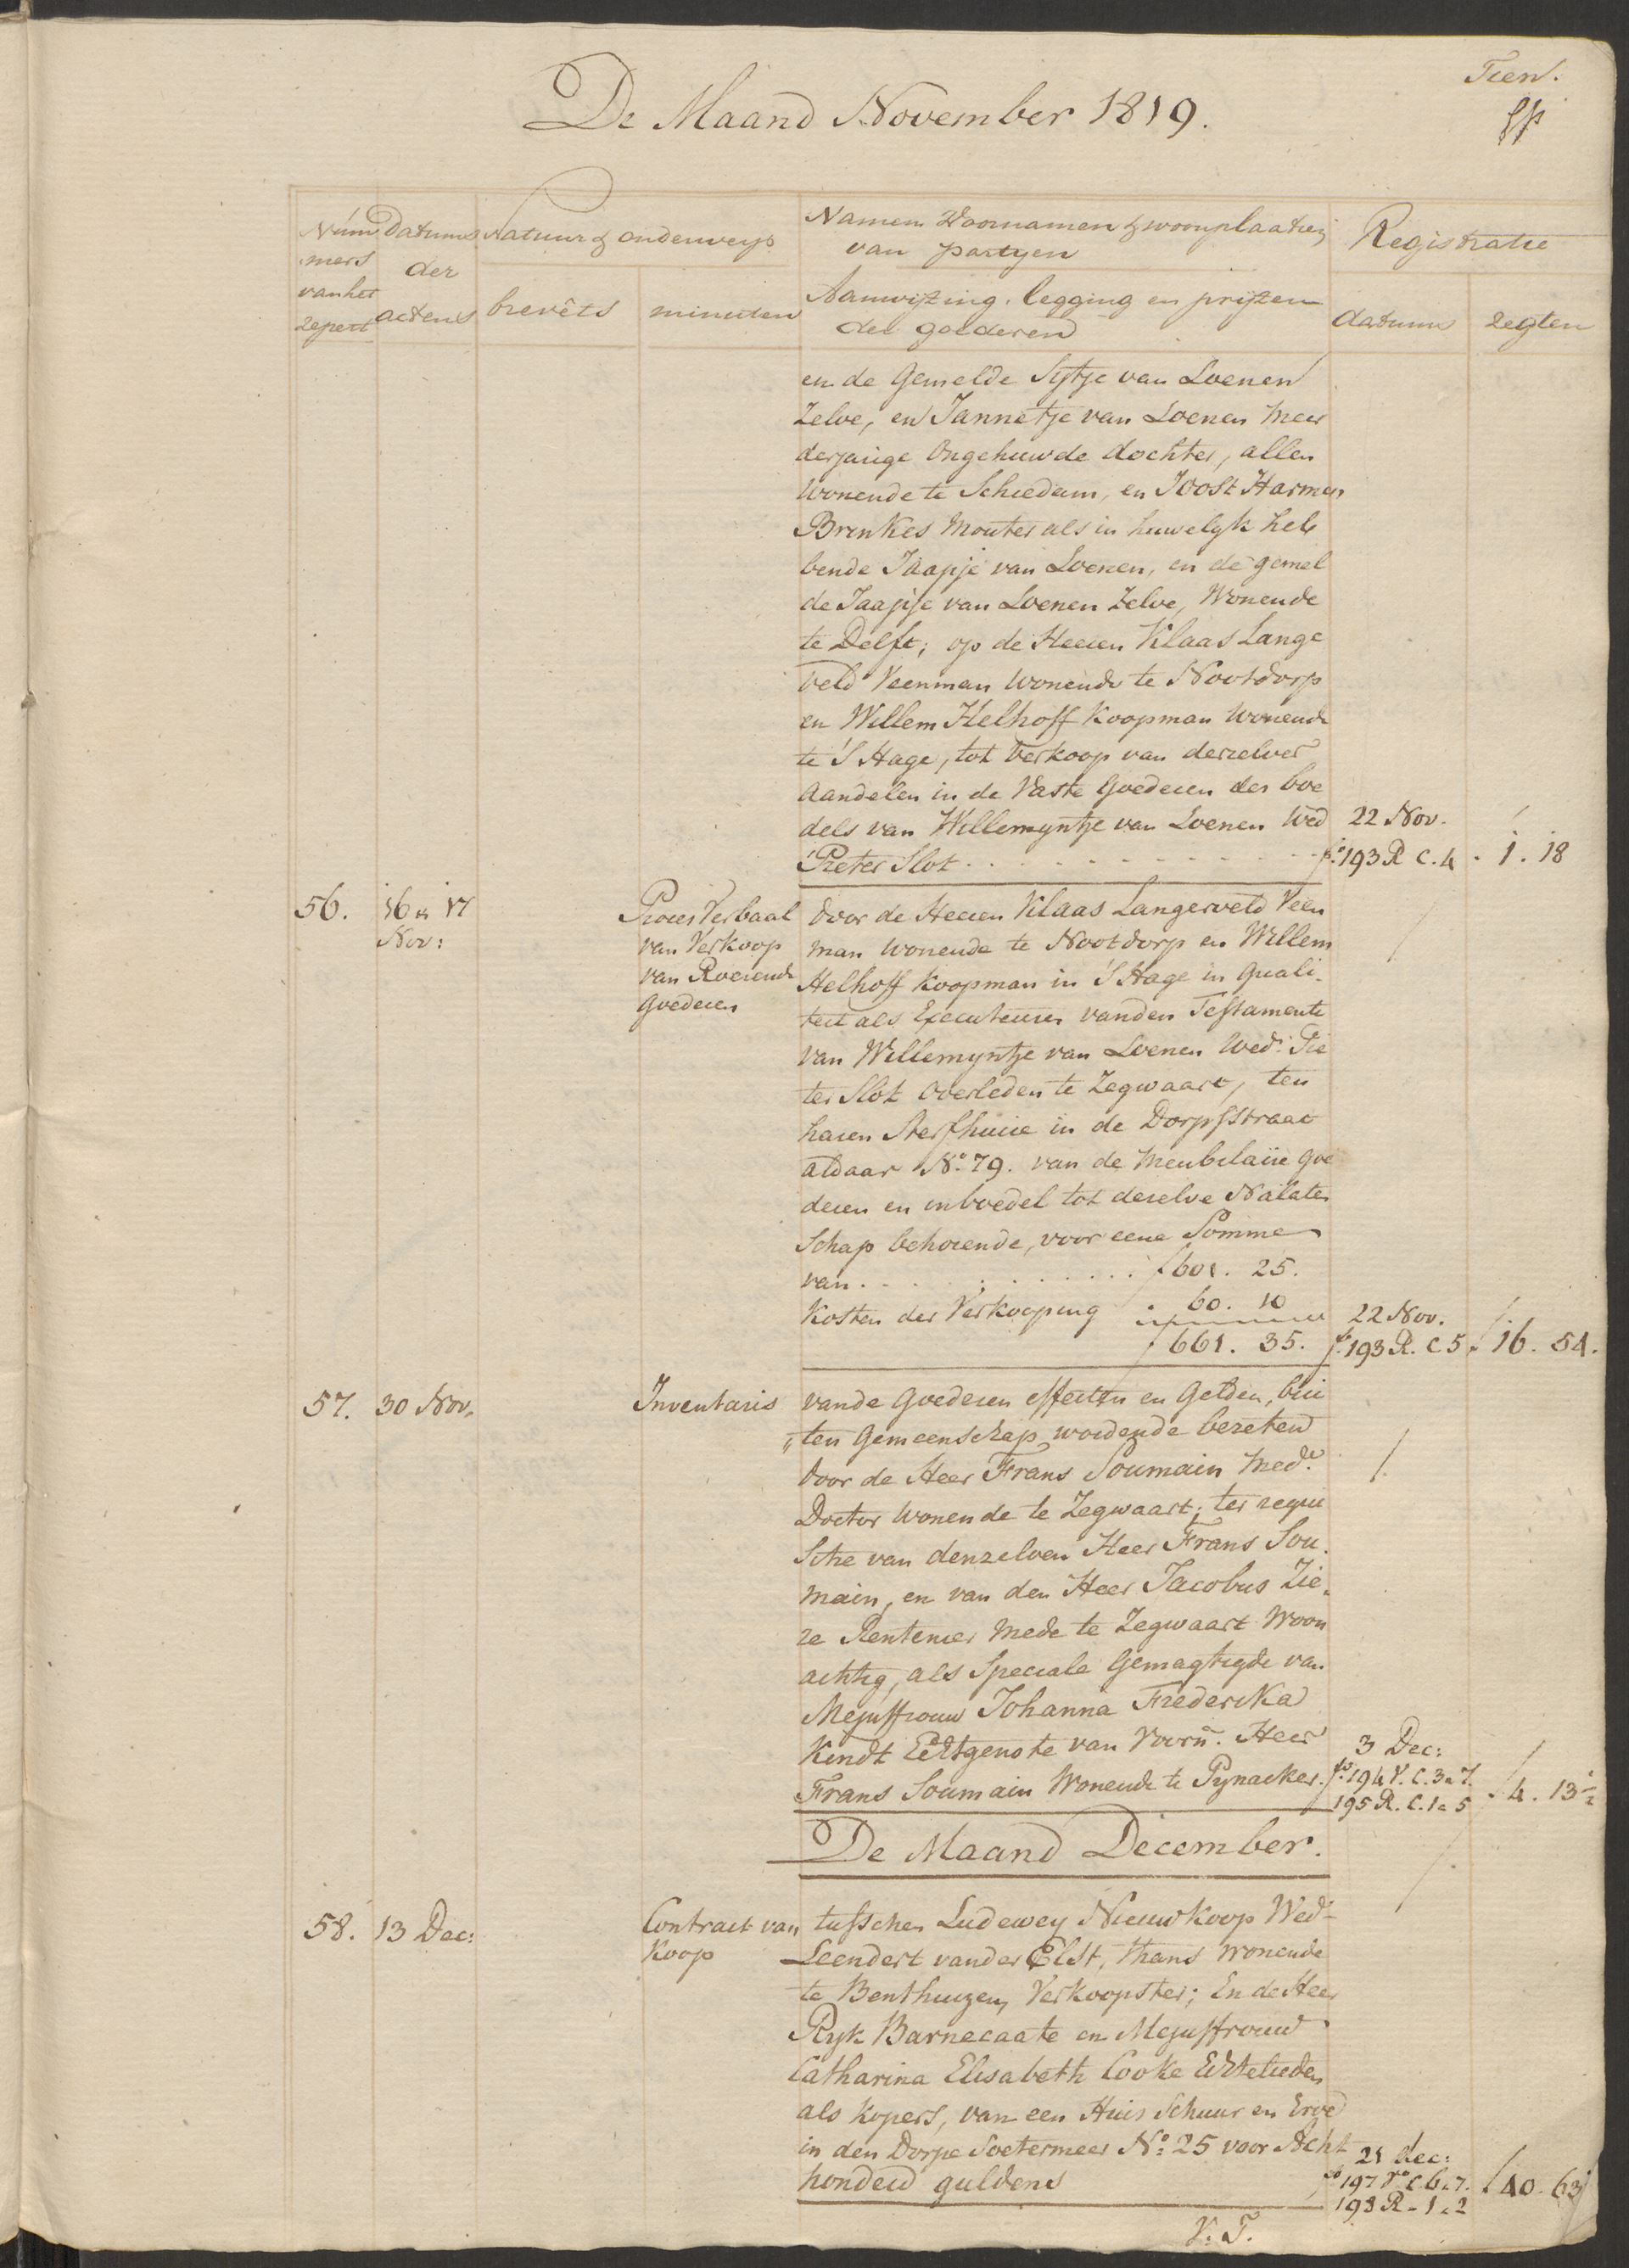 Tien.
De Maand November 1819.
Num
mers
van het
repert
Datums
der
actens
Natuur & onderwerp
brevêts
minuten
Namen Voornamen & woonplaatsen
van partyen
Aanwijzing, legging en prijzen
der goederen
Registratie
datums
regten
en de Gemelde Sijtje van Loenen
Zelve, en Jannetje van Loenen Meer
derjarige Ongehuwde dochter, allen
Wonende te Schiedam, en Joost Harmen
Brinkes Mouter als in huwelyk heb
bende Jaapje van Loenen, en de gemel
de Jaapje van Loenen Zelve, Wonende
te Delft; op de Heeren Klaas Lange
veld Veenman Wonende te Nootdorp
en Willem Helhoff Koopman Wonende
te 'S Hage, tot Verkoop van derzelver
Aandelen in de Vaste Goederen des boe
dels van Willemyntje van Loenen Wed 22 Nov.
Pieter Slot . . . . . fo. 193 R C. 4 . 1 . 18
56. 16 en 17
Nov:
Proces Verbaal
van Verkoop
van Roerende
Goederen
door de Heeren Klaas Langeveld Veen
man Wonende te Nootdorp en Willem
Helhoff Koopman in 'S Hage in Quali-
teit als Executeuren vanden Testamente
van Willemyntje van Loenen Wed: Pie
ter Slot Overleden te Zegwaart, ten
haren Sterfhuise in de Dorpsstraat
aldaar No. 79. van de Meubilaire Goe
deren en inboedel tot derselve Nalaten
Schap behorende, voor eene Somme
van . . . . . . . f 601. 25.
Kosten der Verkooping . 60. 10 22 Nov.
f 661. 35. fo. 193 R. C 5 f 16. 54.
57. 30 Nov.
Inventaris
vande Goederen effecten en Gelden, bui
„ten Gemeenschap wordende bezeten
door de Heer Frans Soumain Med:
Doctor Wonende te Zegwaart; ter requi
Sitie van denzelven Heer Frans Sou-
main, en van den Heer Jacobus Zie-
re Rentenier Mede te Zegwaart Woon
achtig, als Speciale Gemagtigde van
Mejuffrouw Johanna Frederika
Kindt Echtgenote van Voorn. Heer 3 Dec:
Frans Soumain Wonende te Pynacker. fo. 194 V. C. 3 a 7.
195 R. C. 1 a 5 f 4. 13½
De Maand December.
58. 13 Dec:
Contract van
Koop
tusschen Ludewey Nieuwkoop Wed-
Leendert vander Elst, thans Wonende
te Benthuizen, Verkoopster; En de Heer
Ryk Barnecaate en Mejuffrouw
Catharina Elisabeth Cooke Echtelieden
als Kopers, van een Huis Schuur en Erve
in den Dorpe Soetermeer No: 25 voor Acht 21 dec:
honderd guldens fo 197 Vo C 6 a 7.
198 R - 1 a 2 f 40. 63
V: T.